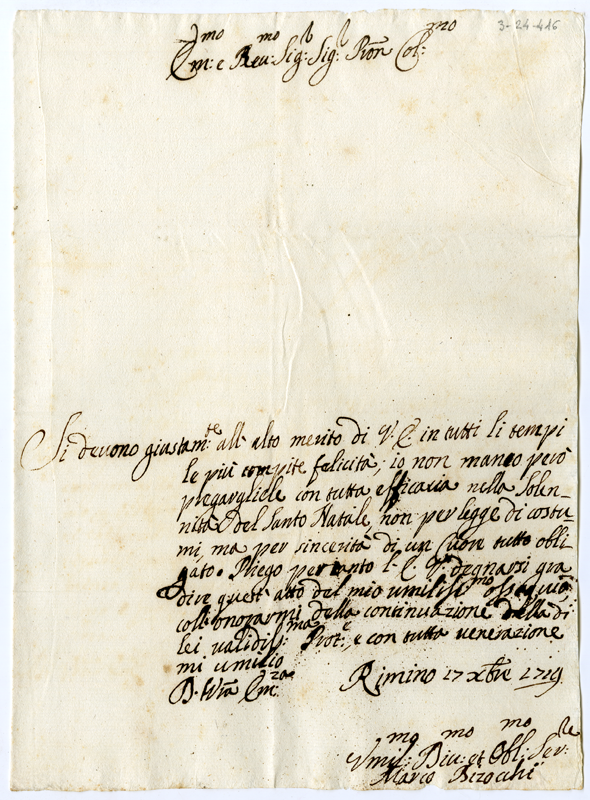 3-24-446
Em:mo e Reu:mo Sig:r Sig:r Pron Col:mo
Si deuono giustam:te all' alto merito di V. E. in tutti li tempi
le più compite felicità; io non manco però
pregargliele con tutta efficacia nella Solen-
nità del Santo Natale, non per legge di costu-
mi, ma per sincerità di un Cuore tutto obli
gato. Priego pertanto l' E. V. degnarsi gra
dire quest' atto del mio umilisi:mo ossequio,
coll' onorarmi della continuazione della di
lei validis:ma Prot:e, e con tutta venerazione
mi umilio
D. Vra Em:za Rimino 27 xbre 1719
Vmil:mo Diu:mo et Obl:mo Ser:re
Marco Bizochi